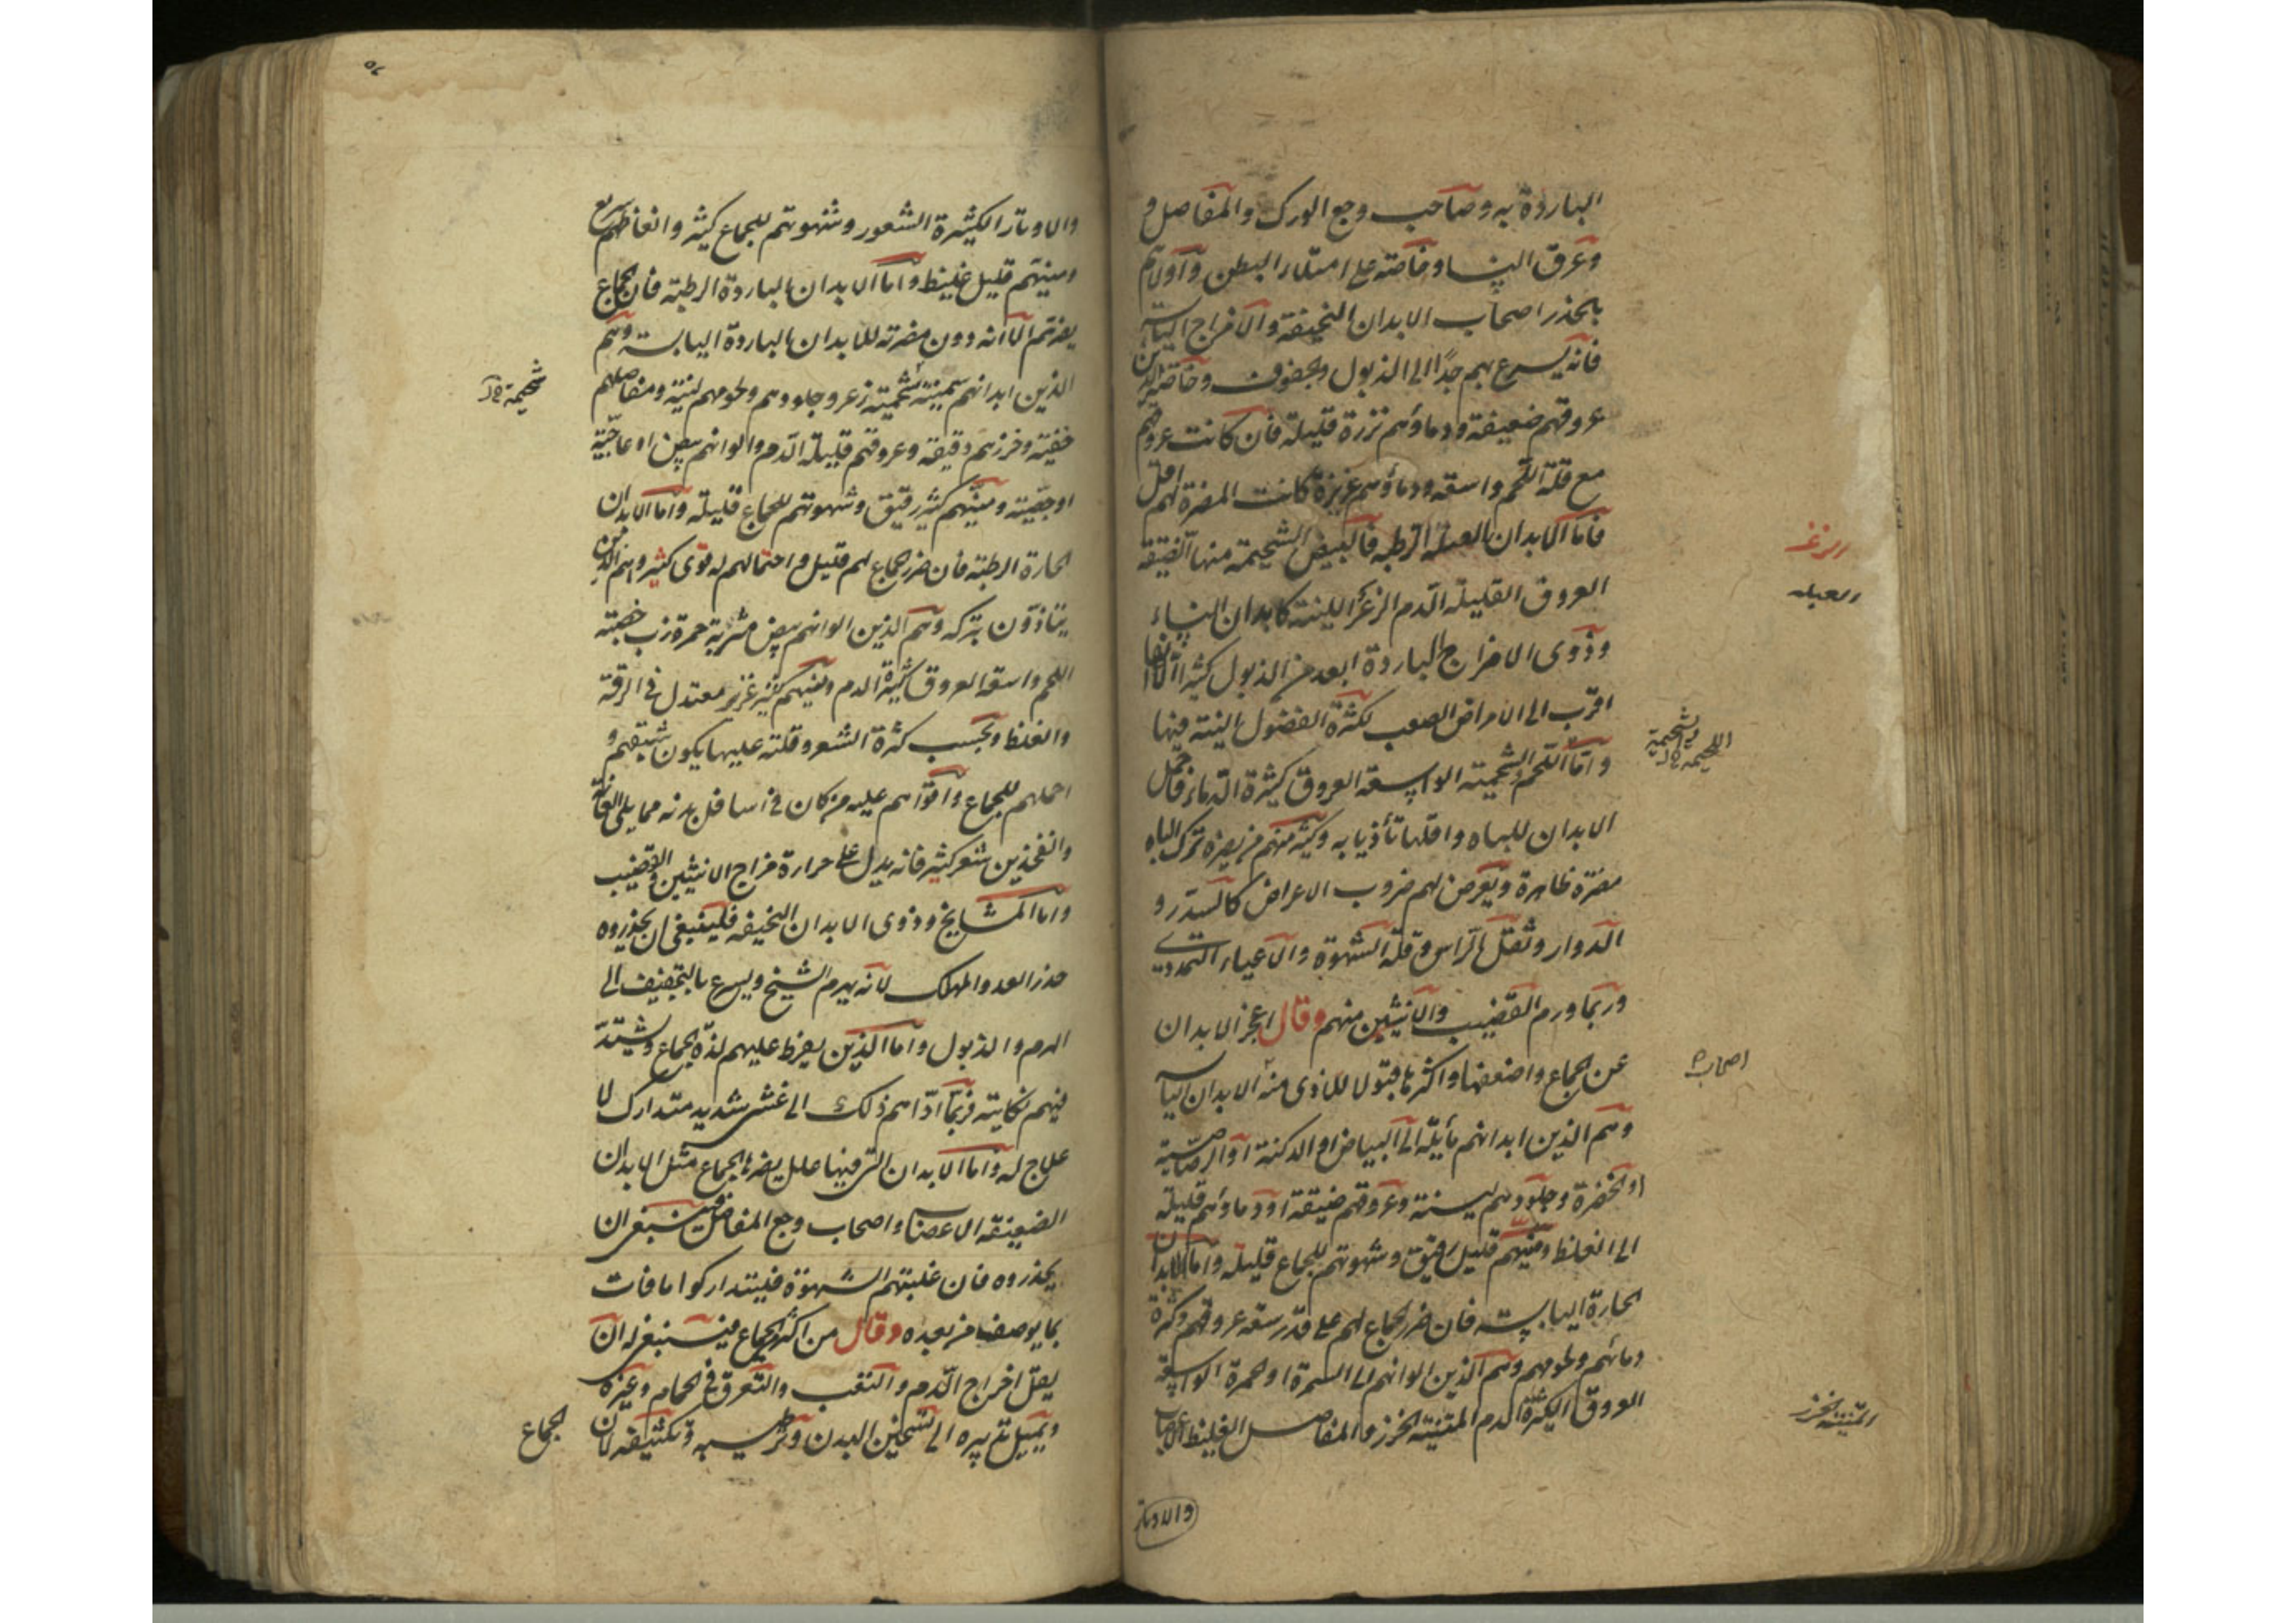 الباردة به وصاحب وجع الورك والمفاصل و
وعرق النساء وخاصته على امتلاء البطن واولاهم
بالحذر اصحاب الابدان النحيفة والامزاج اليابسة
فانه يسرع بهم جدًا الى الذبول والجفوف وخاصة الذين
عروقهم ضعيفة ودماؤهم نزرة قليلة فان كانت عروقهم
مع قلة اللحم واسعة ودماؤهم غزيرة كانت المضرة لهم اقل
فاما الابدان العبلة الرطبة فالبيض الشحيمة منها الضيقة
العروق القليلة الدم الزعر اللينة كابدان النساء
وذوى الامزاج الباردة ابعد من الذبول كثيرا الا انها
اقرب الى الامراض الصعب لكثرة الفضول النية فيها
واما اللحم والشحمية الواسعة العروق كثيرة الدماء فاحمل
الابدان للباه واقلها تأذيا به وكثير منهم من يضره ترك الباه
مضرة ظاهرة ويعرض لهم ضروب الاعراض كالسدر و
الدوار وثقل الراس وقلة الشهوة والاعياء التمددى
وربما ورم القضيب والانثيين منهم وقال اعجز الابدان
عن الجماع واضعفها واكثرها قبولا للاذى منه الابدان اليابسة
وهم الذين ابدانهم مائلة الى البياض او الدكنة او الرصاصية
او الخضرة وجلودهم لينة وعروقهم ضيقة اوو دماؤهم قليلة
الى الغلظ ومنيهم قليل رقيق وشهوتهم للجماع قليلة واما الابدان
الحارة اليابسة فان ضرر الجماع لهم على قدر سعة عروقهم وكثرة
دمائهم ولحومهم وهم الذين الوانهم الى السمرة او الحمرة الواسعة
العروق الكثيرة الدم المتينة الخرز والمفاصل الغليظة
والاوتار
الزعر
العبلة
اللحيمة الشحيمة
اصحاب
المتينة الخرز
والاوتار الكثيرة الشعور وشهوتهم للجماع كثير وانعاظهم سريع
ومنيهم قليل غليظ واما الابدان الباردة الرطبة فان الجماع
يضرهم الا انه دون مضرته للابدان الباردة اليابسة وهم
الذين ابدانهم سمينة شحمية زعر وجلودهم ولحومهم لينة ومفاصلهم
خفية وخرزهم دقيقة وعروقهم قليلة الدم والوانهم بيض او عاجية
او جصية ومنيهم كثير رقيق وشهوتهم للجماع قليلة واما الابدان
الحارة الرطبة فان ضرر الجماع لهم قليل واحتمالهم له قوى كثير وهم الذين
يتاذون بتركه وهم الذين الوانهم بيض مشربة حمرة زب خصبة
اللحم واسعة العروق كثيرة الدم ومنيهم كثير غزير معتدل فى الرقة
والغلظ وبحسب كثرة الشعر وقلته عليها يكون شبقهم و
احملهم للجماع واقواهم عليه من كان فى اسافل بدنه مما يلى العانة
والفخذين شعر كثير فانه يدل على حرارة مزاج الانثيين والقضيب
واما المشايخ وذوى الابدان النحيفة فلينبغى ان يحذروه
حذر العدو المهلك لانه يهرم الشيخ ويسرع بالتجفيف الى
الهرم والذبول واما الذين يفرط عليهم لذة الجماع ويشتد
فيهم نكايته فربما اداهم ذلك الى غشى شديد متدارك لا
علاج له واما الابدان التى فيها علل يضرها الجماع مثل الابدان
الضعيفة الاعصاب واصحاب وجع المفاصل فينبغى ان
يحذروه فان غلبتهم الشهوة فليتداركوا ما فات
بما يوصف من بعده وقال من اكثر الجماع فينبغى له ان
يقل اخراج الدم والتعب والتعرق فى الحمام وغيره
ويميل تدبيره الى تسخين البدن وترطيبه وتكثيفه لان
الجماع
شحيمة